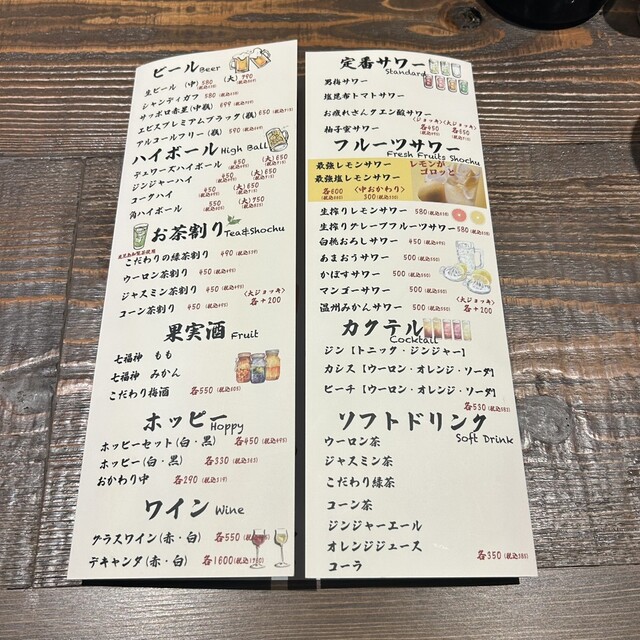 ビール Beer
生ビール (中) 580 (大) 790
シャンディガフ 580
サッポロ赤星(中瓶) 699
エビスプレミアムブラック(瓶) 650
アルコールフリー(瓶) 590
ハイボール High Ball
デュワーズハイボール 450 (大)650
ジンジャーハイ 450 (大)650
コークハイ 450 (大)650
角ハイボール 550 (大)750
お茶割り Tea&Shochu
こだわりの緑茶割り 490
ウーロン茶割り 450 (税込495)
ジャスミン茶割り 450 (税込495)
コーン茶割り 450 (税込495)
〈大ジョッキ〉
各+200
果実酒 Fruit
七福神 もも
七福神 みかん
こだわり梅酒 各550(税込605)
ホッピー Hoppy
ホッピーセット(白・黒) 各450(税込495)
ホッピー(白・黒) 各330(税込363)
おかわり中 各290(税込319)
ワイン Wine
グラスワイン(赤・白) 各550(税込605)
デキャンタ(赤・白) 各1600(税込1760)
定番サワー Standard
男梅サワー
塩昆布トマトサワー
お疲れさんクエン酸サワー
〈ジョッキ〉〈大ジョッキ〉
柚子蜜サワー 各450 各650
フルーツサワー
Fresh Fruits Shochu
最強レモンサワー
最強塩レモンサワー
レモンが
ゴロッと
各600 〈中おかわり〉
300
生搾りレモンサワー 580
生搾りグレープフルーツサワー 580
白桃おろしサワー 450(税込495)
あまおうサワー 500(税込550)
かぼすサワー 500(税込550)
マンゴーサワー 500(税込550)
温州みかんサワー 500(税込550)
〈大ジョッキ〉
各+200
カクテル Cocktail
ジン【トニック・ジンジャー】
カシス【ウーロン・オレンジ・ソーダ】
ピーチ【ウーロン・オレンジ・ソーダ】
各530(税込583)
ソフトドリンク
Soft Drink
ウーロン茶
ジャスミン茶
こだわり緑茶
コーン茶
ジンジャーエール
オレンジジュース
コーラ
各350(税込385)